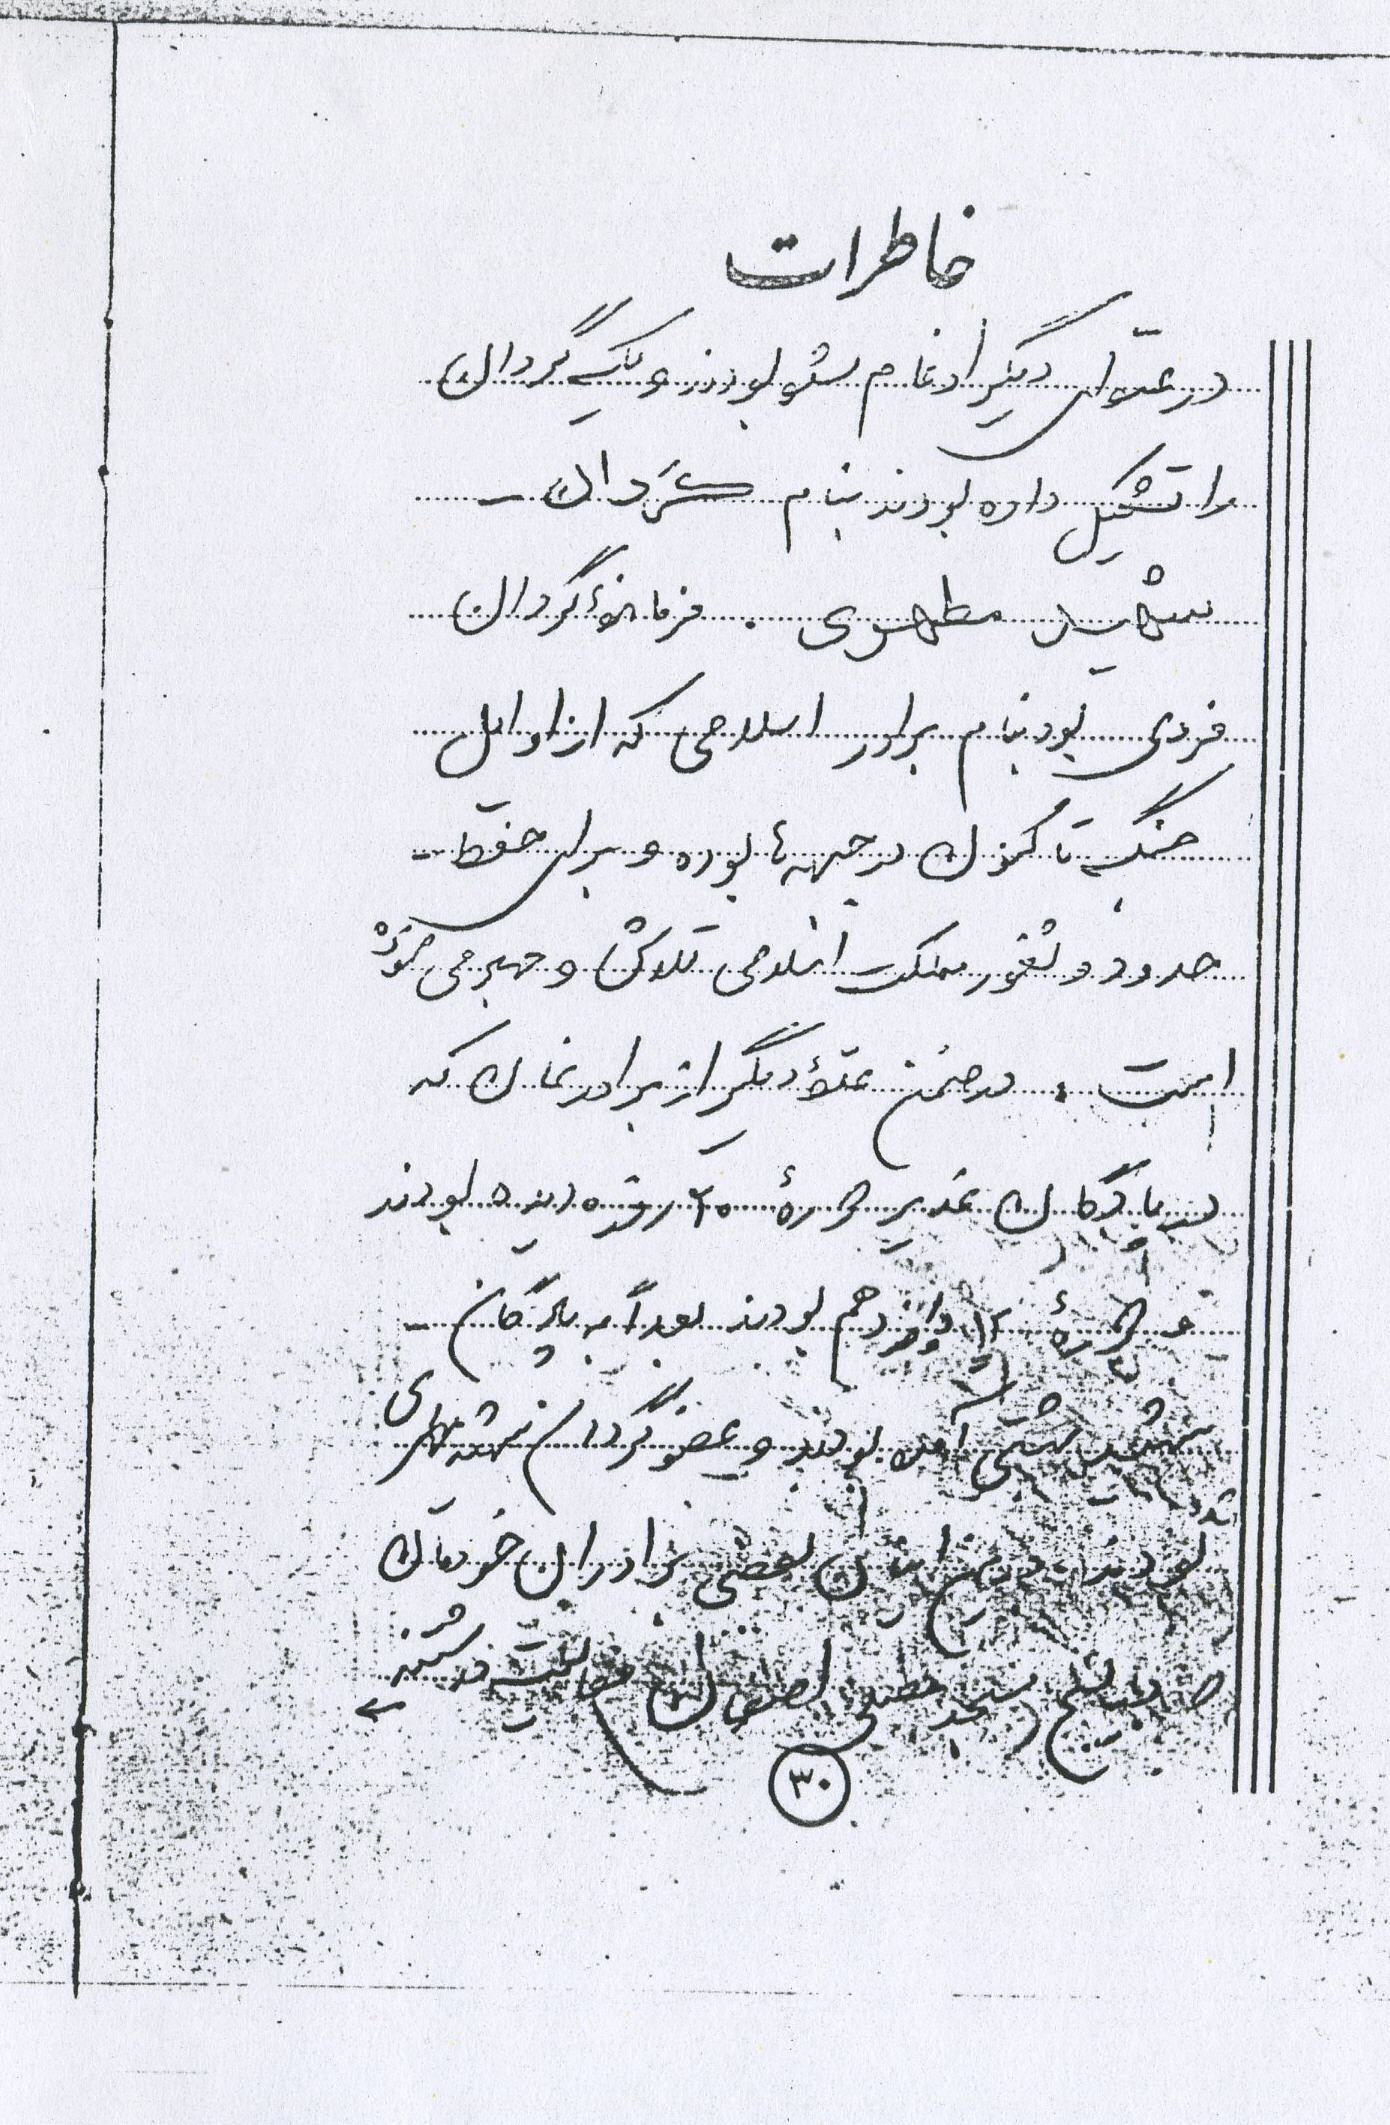 خاطرات
در عده‌ای دیگر ادغام شده بودند و یک گردان
را تشکیل داده بودند بنام گردان
شهید مطهری . فرماندهٔ گردان
فردی بود بنام برادر اسلامی که از اوایل
جنگ تا کنون در جبهه‌ها بوده و برای حفظ
حدود و ثغور مملکت اسلامی تلاش و می‌نموده
است . در ضمن عدهٔ دیگر از برادرمان که
در پادگان غدیر دورهٔ ۲۰ روزه دیده بودند
و دورهٔ ۱۲ دوازدهم بودند بعداً به پادگان
شهید بهشتی آمده بودند و عضو گردان شهید مطهری
شده
بودند در بین ایشان بعضی برادران خودمان
مسجد
۳۰